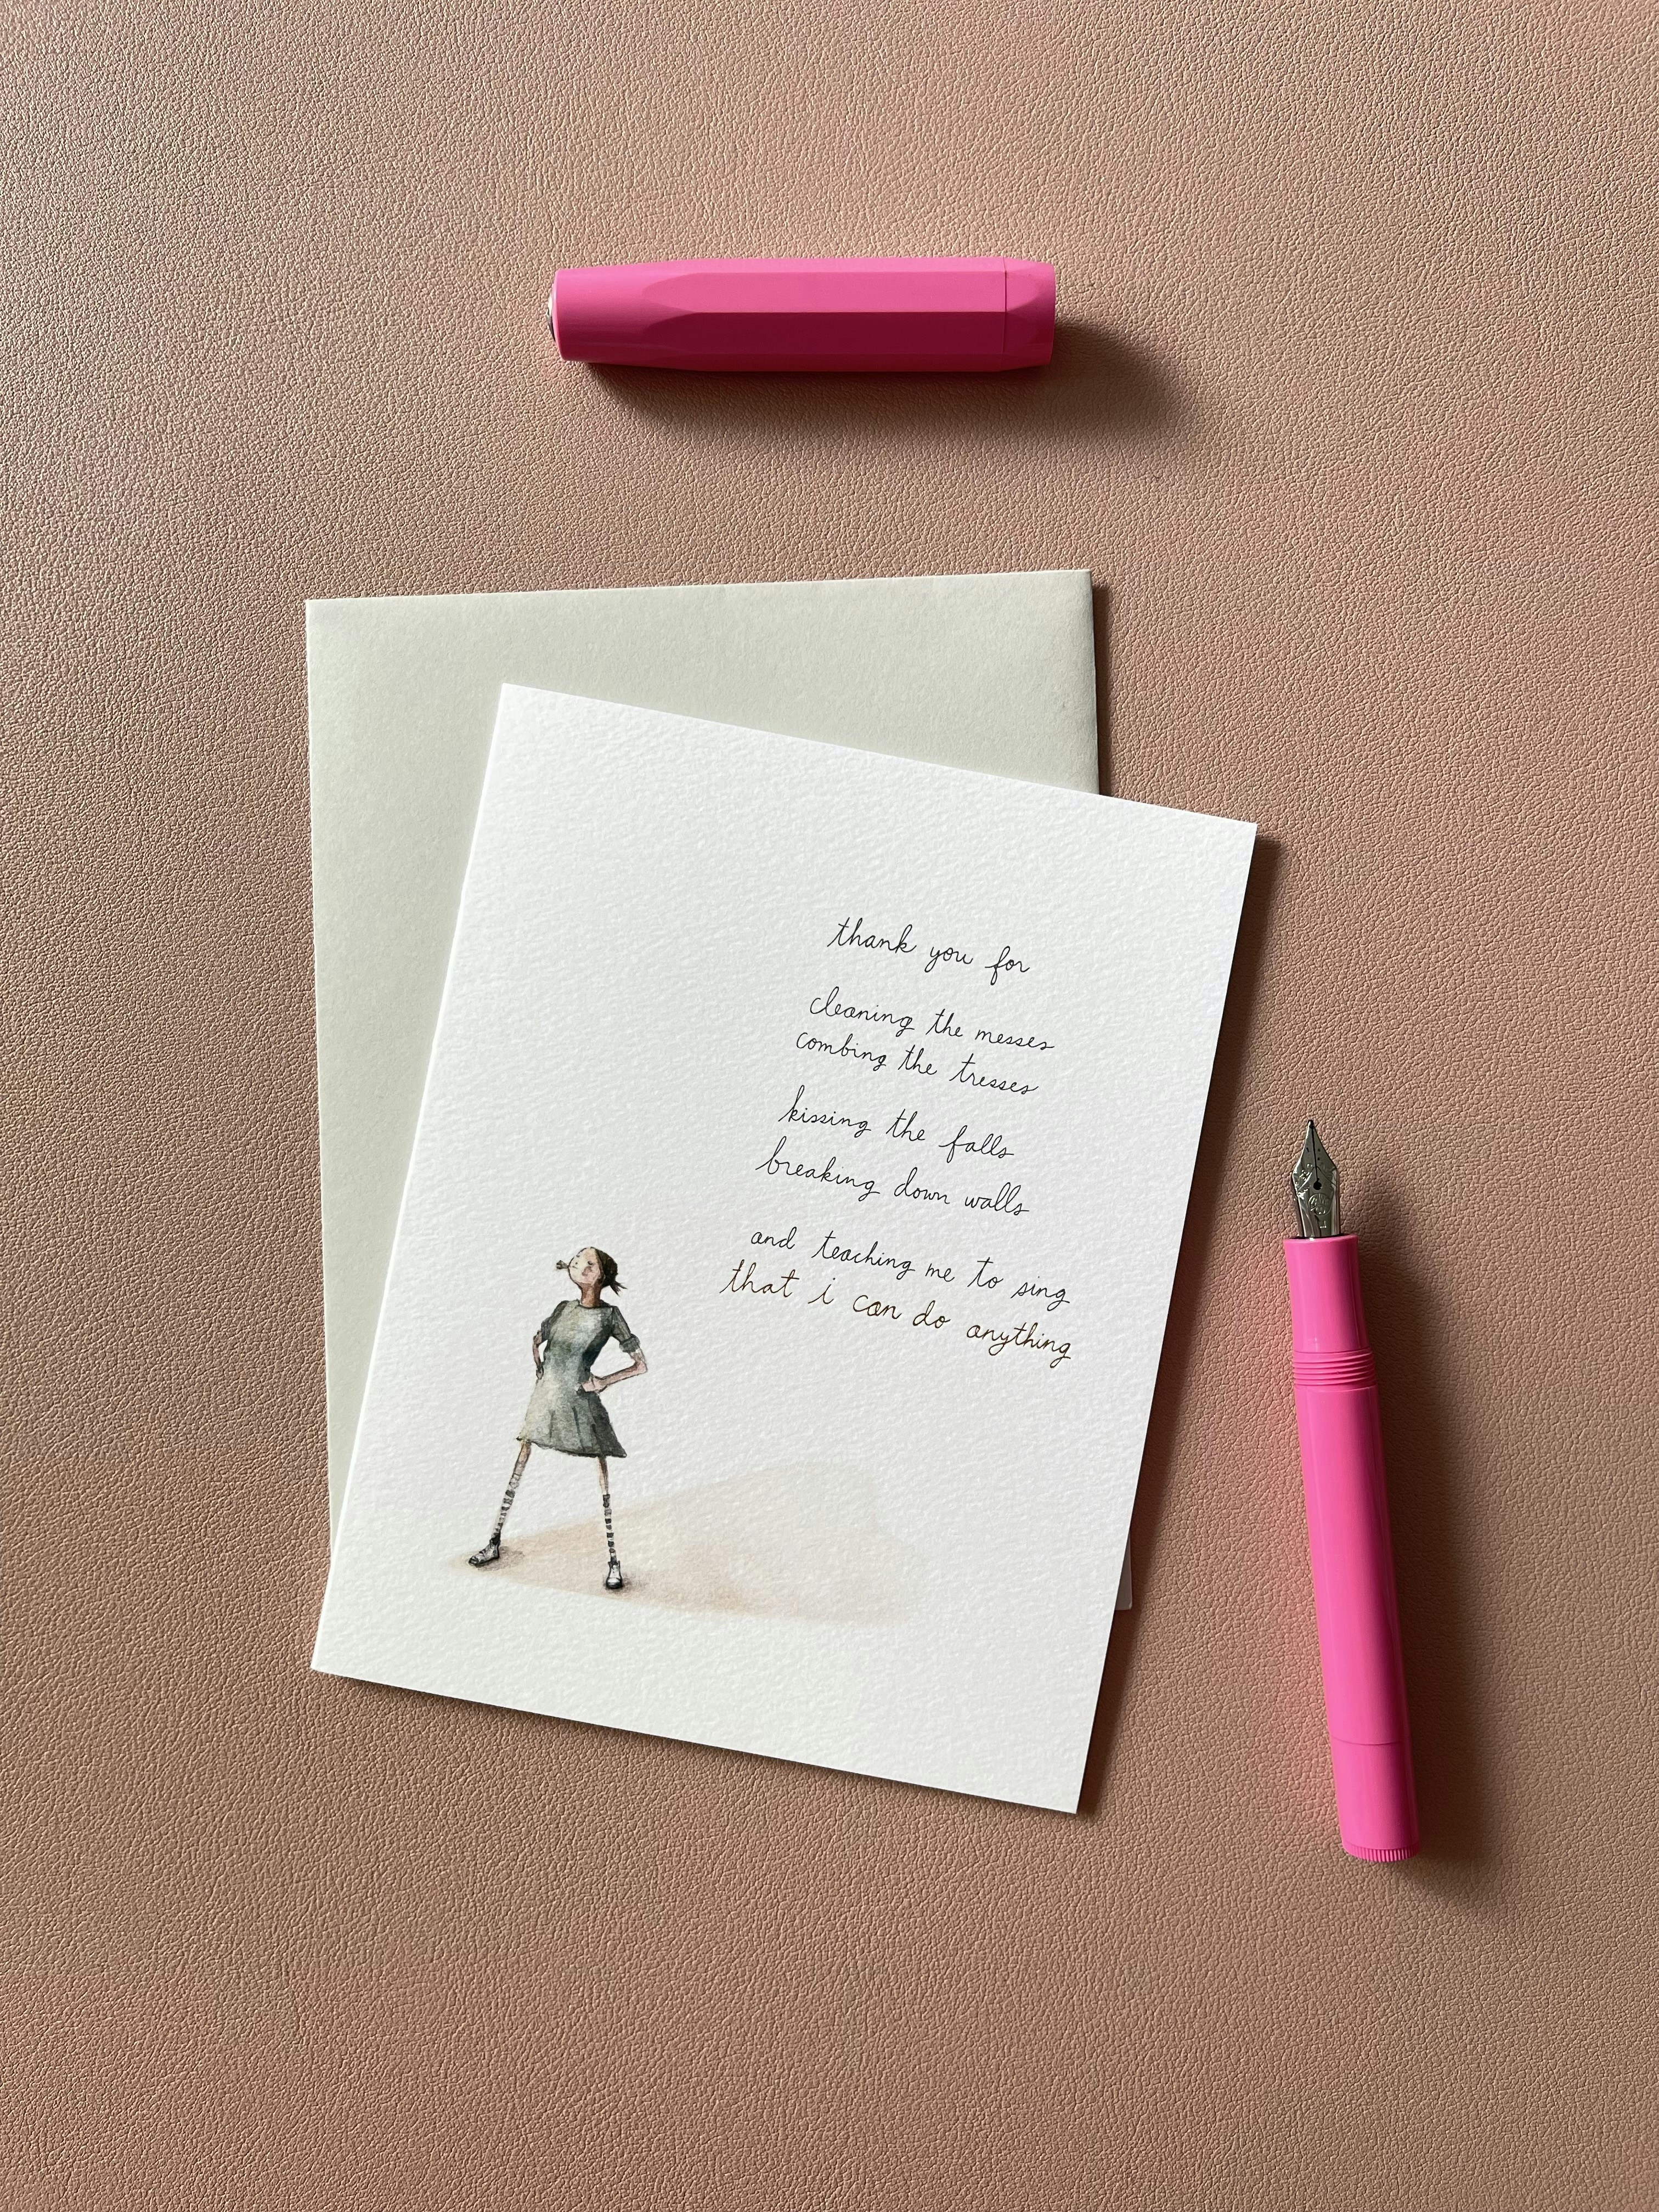 thank you for
cleaning the messes
combing the tresses
kissing the falls
breaking down walls
and teaching me to sing
that i can do anything